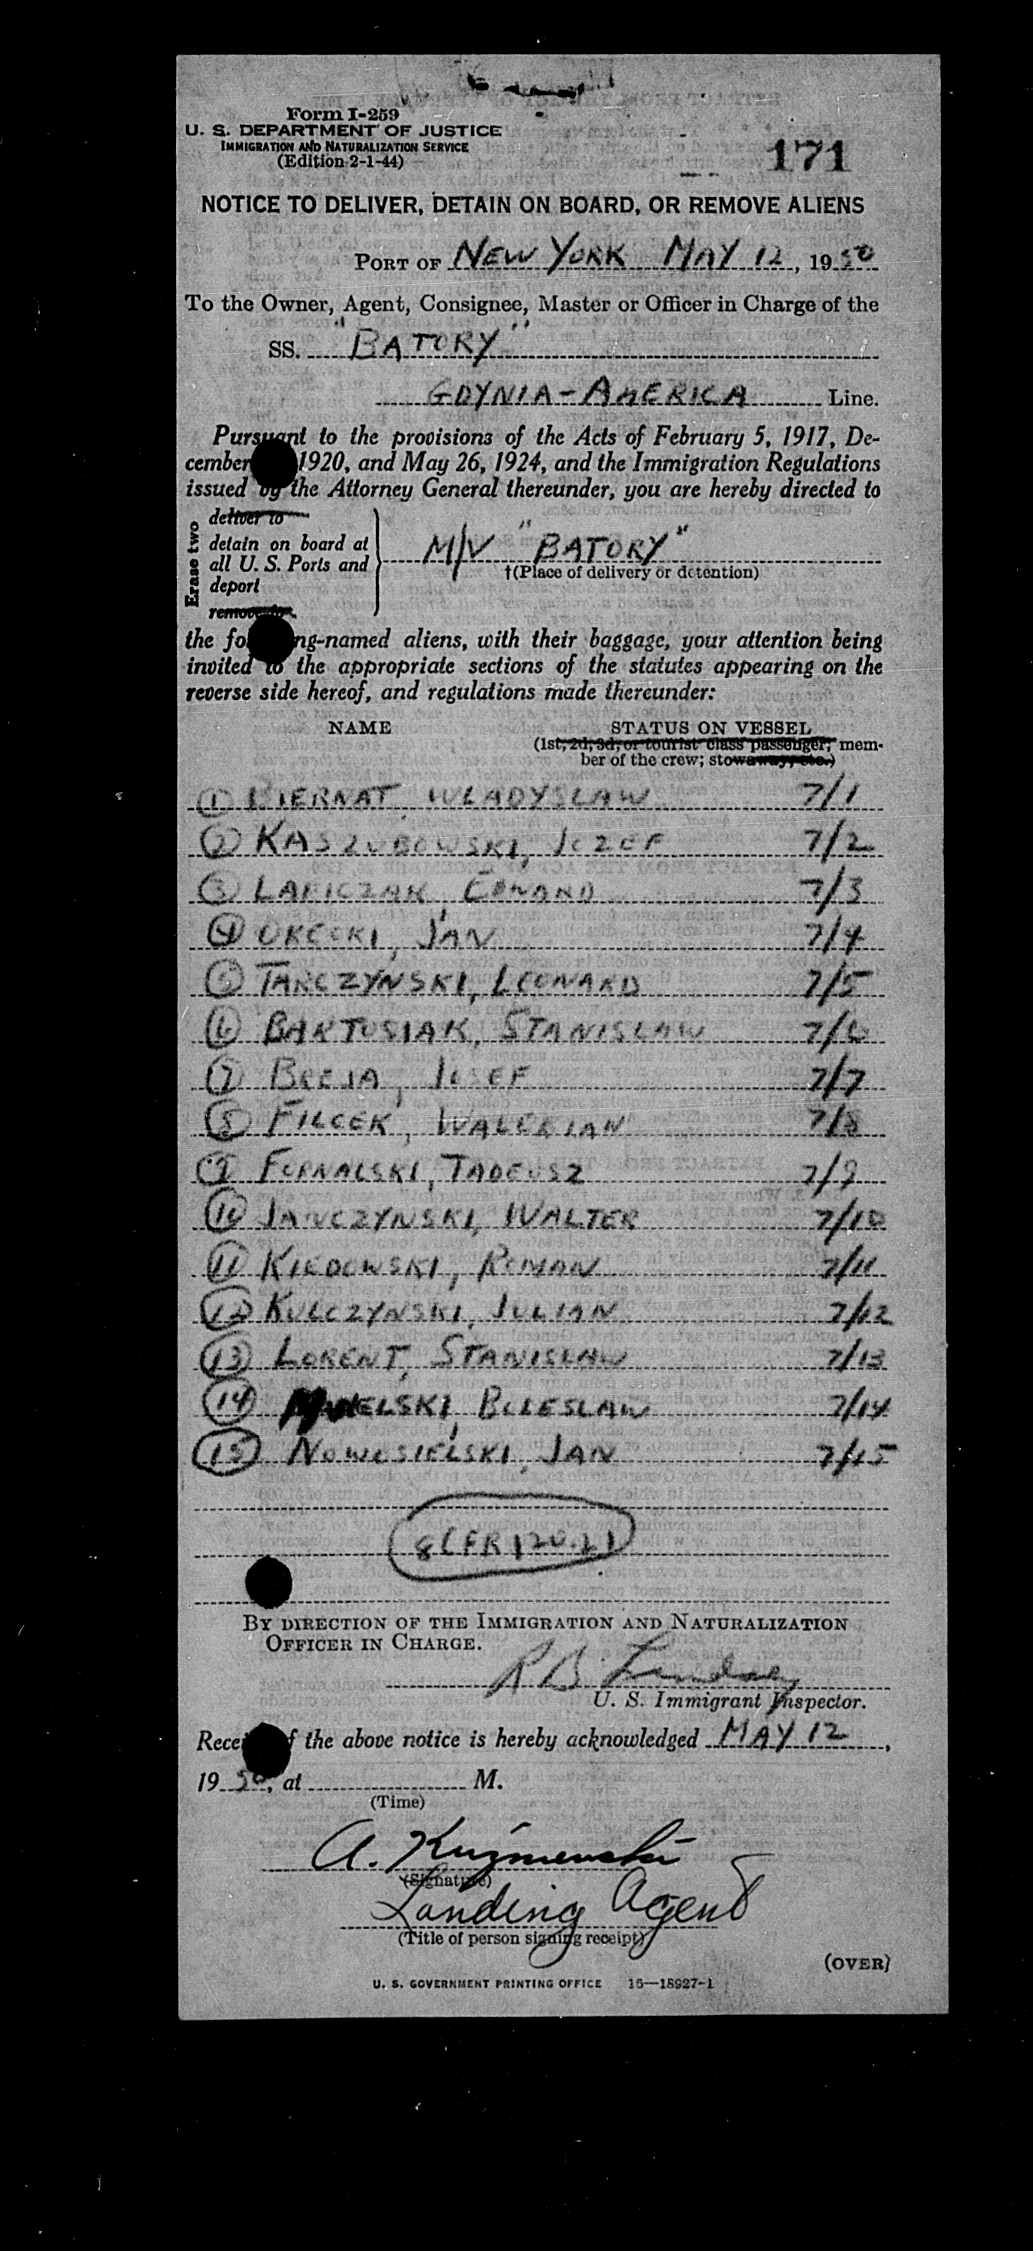 Form I-259
U. S. DEPARTMENT OF JUSTICE
IMMIGRATION AND NATURALIZATION SERVICE
(Edition 2-1-44)
171
NOTICE TO DELIVER, DETAIN ON BOARD, OR REMOVE ALIENS
PORT OF NEW YORK MAY 12, 1950
To the Owner, Agent, Consignee, Master or Officer in Charge of the
SS. "BATORY"
GDYNIA-AMERICA Line.
Pursuant to the provisions of the Acts of February 5, 1917, De-
cember 1920, and May 26, 1924, and the Immigration Regulations
issued by the Attorney General thereunder, you are hereby directed to
Erase two
deliver to
detain on board at
all U. S. Ports and
deport
remove to
M/V "BATORY"
†(Place of delivery or detention)
the following-named aliens, with their baggage, your attention being
invited to the appropriate sections of the statutes appearing on the
reverse side hereof, and regulations made thereunder:
NAME STATUS ON VESSEL
(1st, 2d, 3d, or tourist class passenger; mem-
ber of the crew; stowaway, etc.)
1 BIERNAT WLADYSLAW 7/1
2 KASZUBOWSKI, JOZEF 7/2
3 LAFICZAK, EDWARD 7/3
4 OKECKI, JAN 7/4
5 TARCZYNSKI, LEONARD 7/5
6 BARTOSIAK, STANISLAW 7/6
7 BREJA, JOSEF 7/7
8 FILCEK, WALERIAN 7/8
9 FORNALSKI, TADEUSZ 7/9
10 JANCZYNSKI, WALTER 7/10
11 KIEDOWSKI, ROMAN 7/11
12 KULCZYNSKI, JULIAN 7/12
13 LORENT, STANISLAW 7/13
14 BOLESLAW 7/14
15 NOWOSIELSKI, JAN 7/15
8 CFR 120.21
BY DIRECTION OF THE IMMIGRATION AND NATURALIZATION
OFFICER IN CHARGE.
R B Lindsay
U. S. Immigrant Inspector.
Receipt of the above notice is hereby acknowledged MAY 12,
1950, at M.
(Time)
A. Kuzmewski
(Signature)
Landing Agent
(Title of person signing receipt)
(OVER)
U. S. GOVERNMENT PRINTING OFFICE 16—18927-1